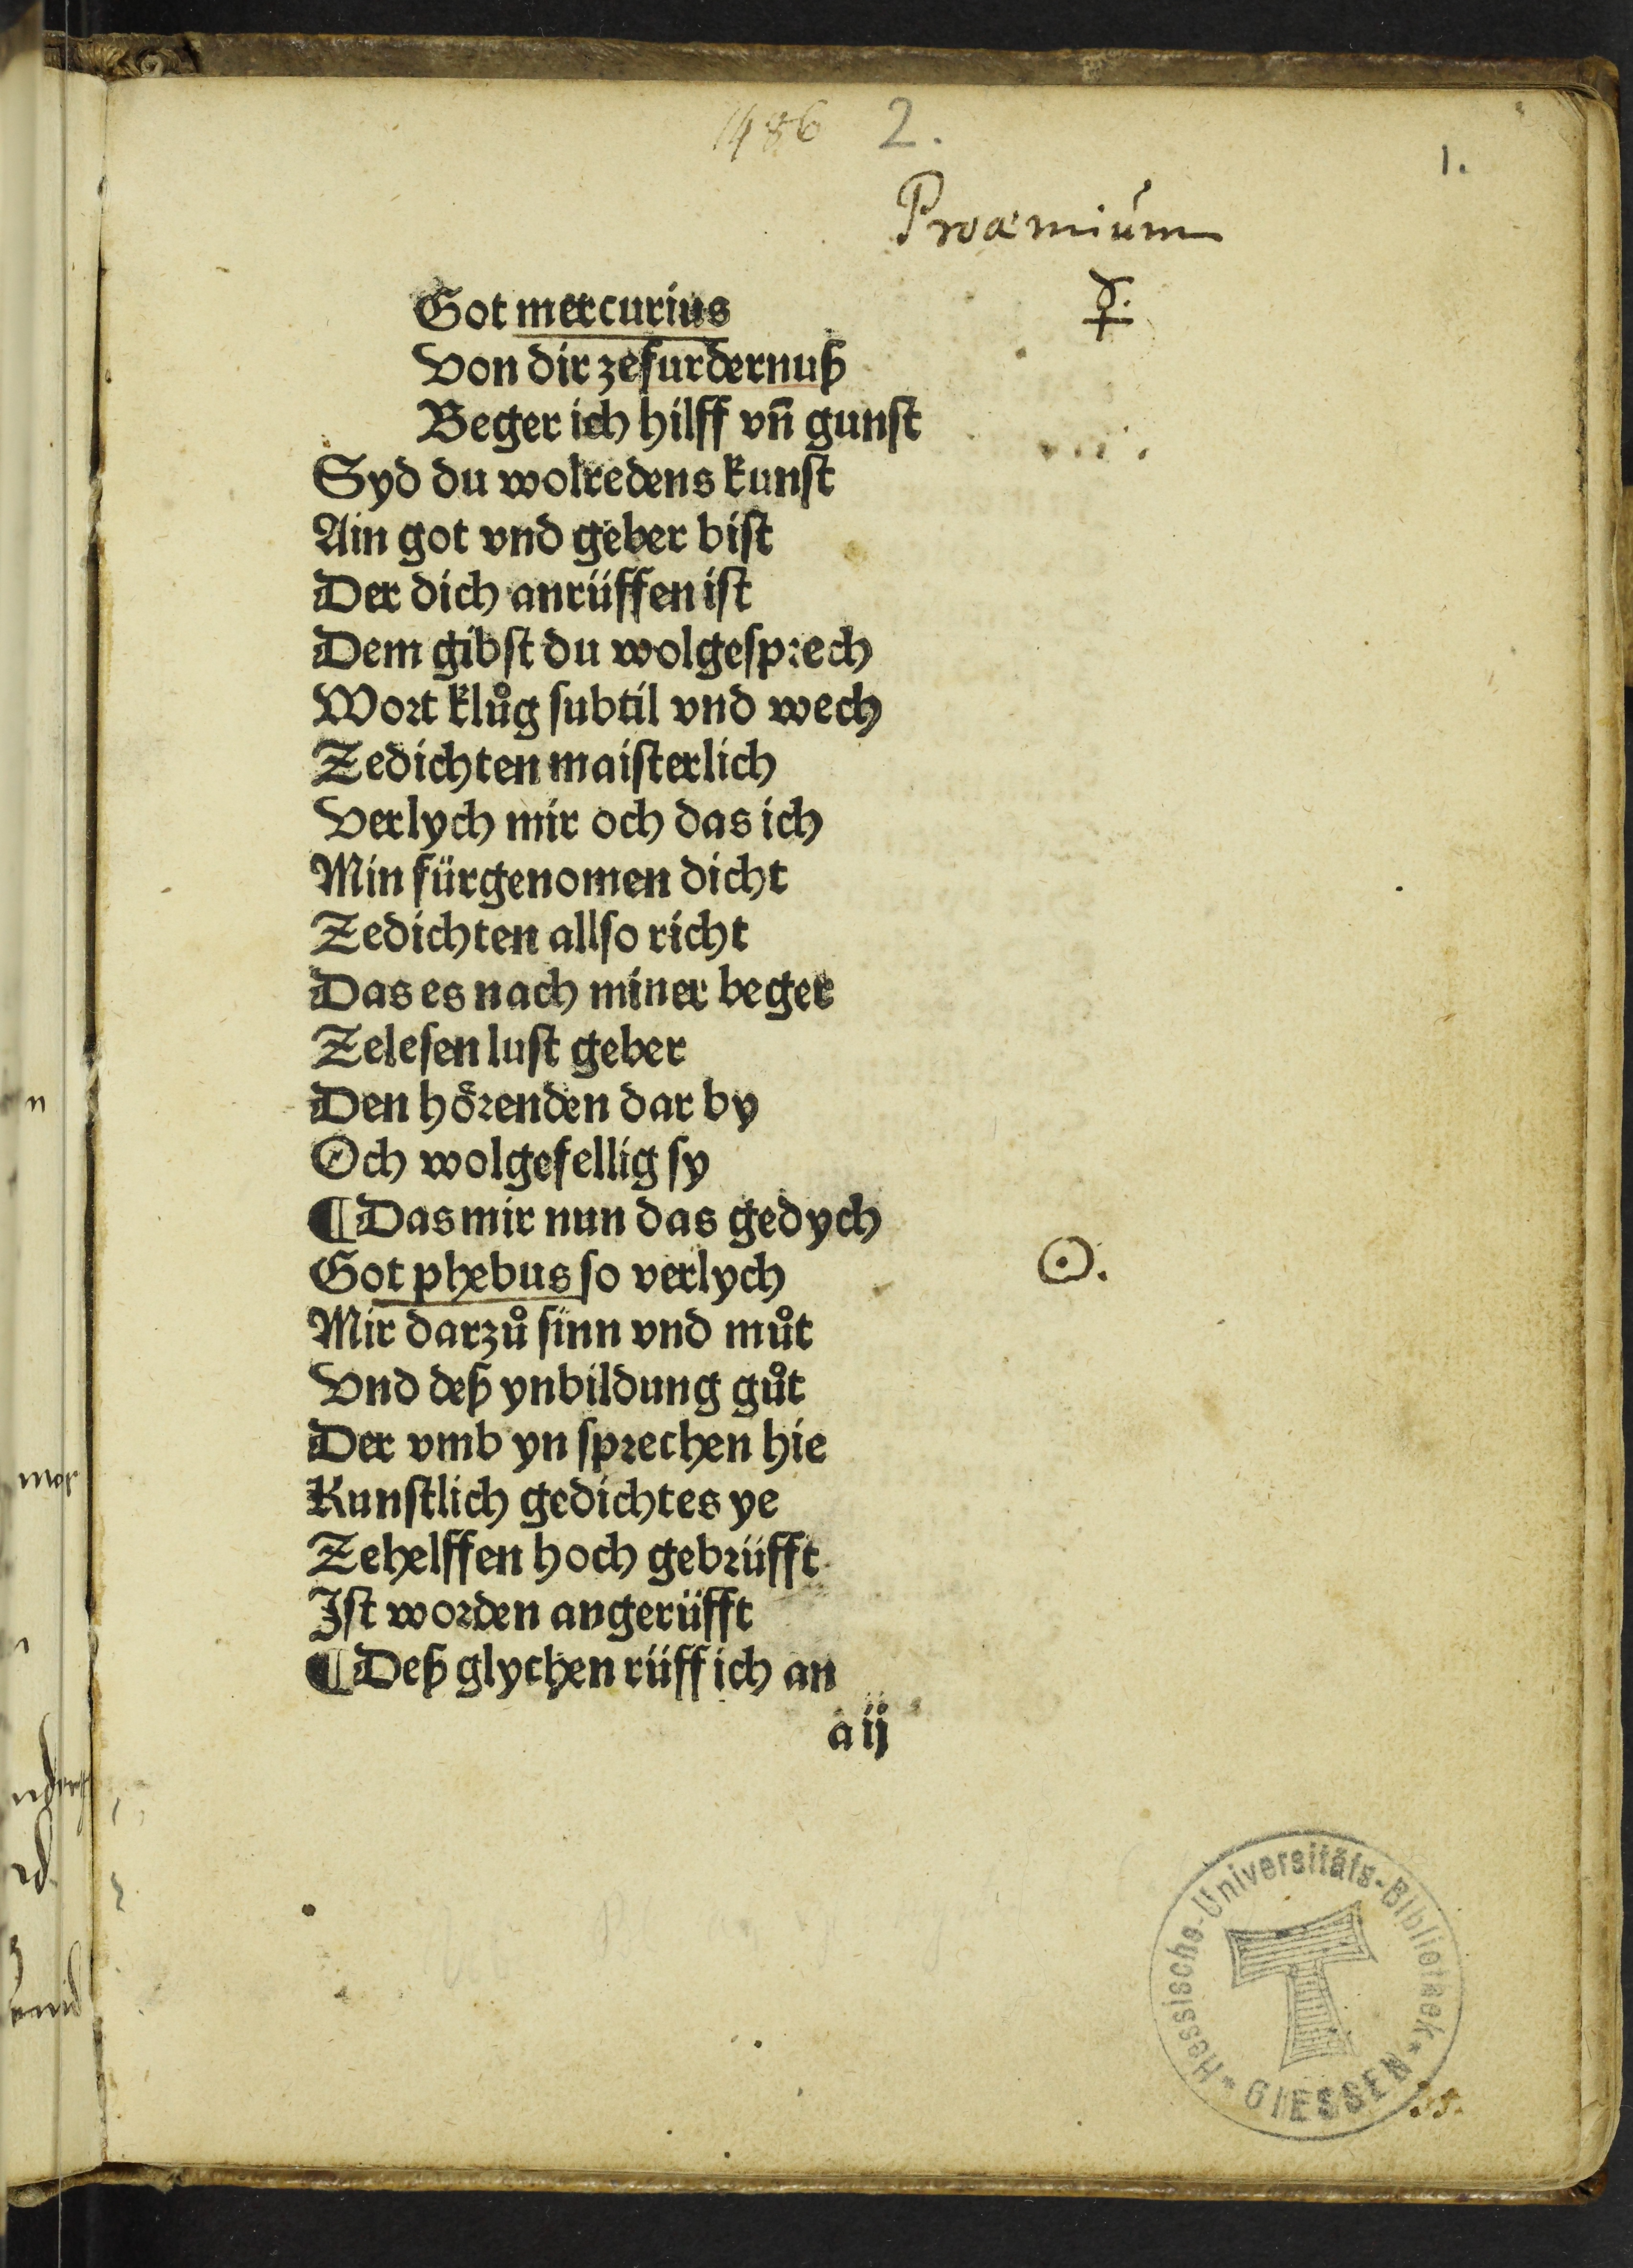 1486 2.
1.
Proœmium
☿.
Got mercurius
Von dir zefurdernuß
Beger ich hilff vn̄ gunſt
Syd du wolredens kunſt
Ain got vnd geber biſt
Der dich anrüffen iſt
Dem gibſt du wolgeſpꝛech
Woꝛt klůg ſubtil vnd wech
Zedichten maiſterlich
Verlych mir och das ich
Min fürgenomen dicht
Zedichten allſo richt
Das es nach miner beger
Zeleſen luſt geber
Den hoͤꝛenden dar by
Och wolgefellig ſy
¶ Das mir nun das gedych
Got phebus ſo verlych
☉.
Mir darzů ſinn vnd můt
Vnd deß ynbildung gůt
Der vmb yn ſpꝛechen hie
Kunſtlich gedichtes ye
Zehelffen hoch gebꝛüfft
Iſt woꝛden angerüfft
¶ Deß glychen rüff ich an
a ij
Hessische-Universitäts-Bibliothek
* GIESSEN *